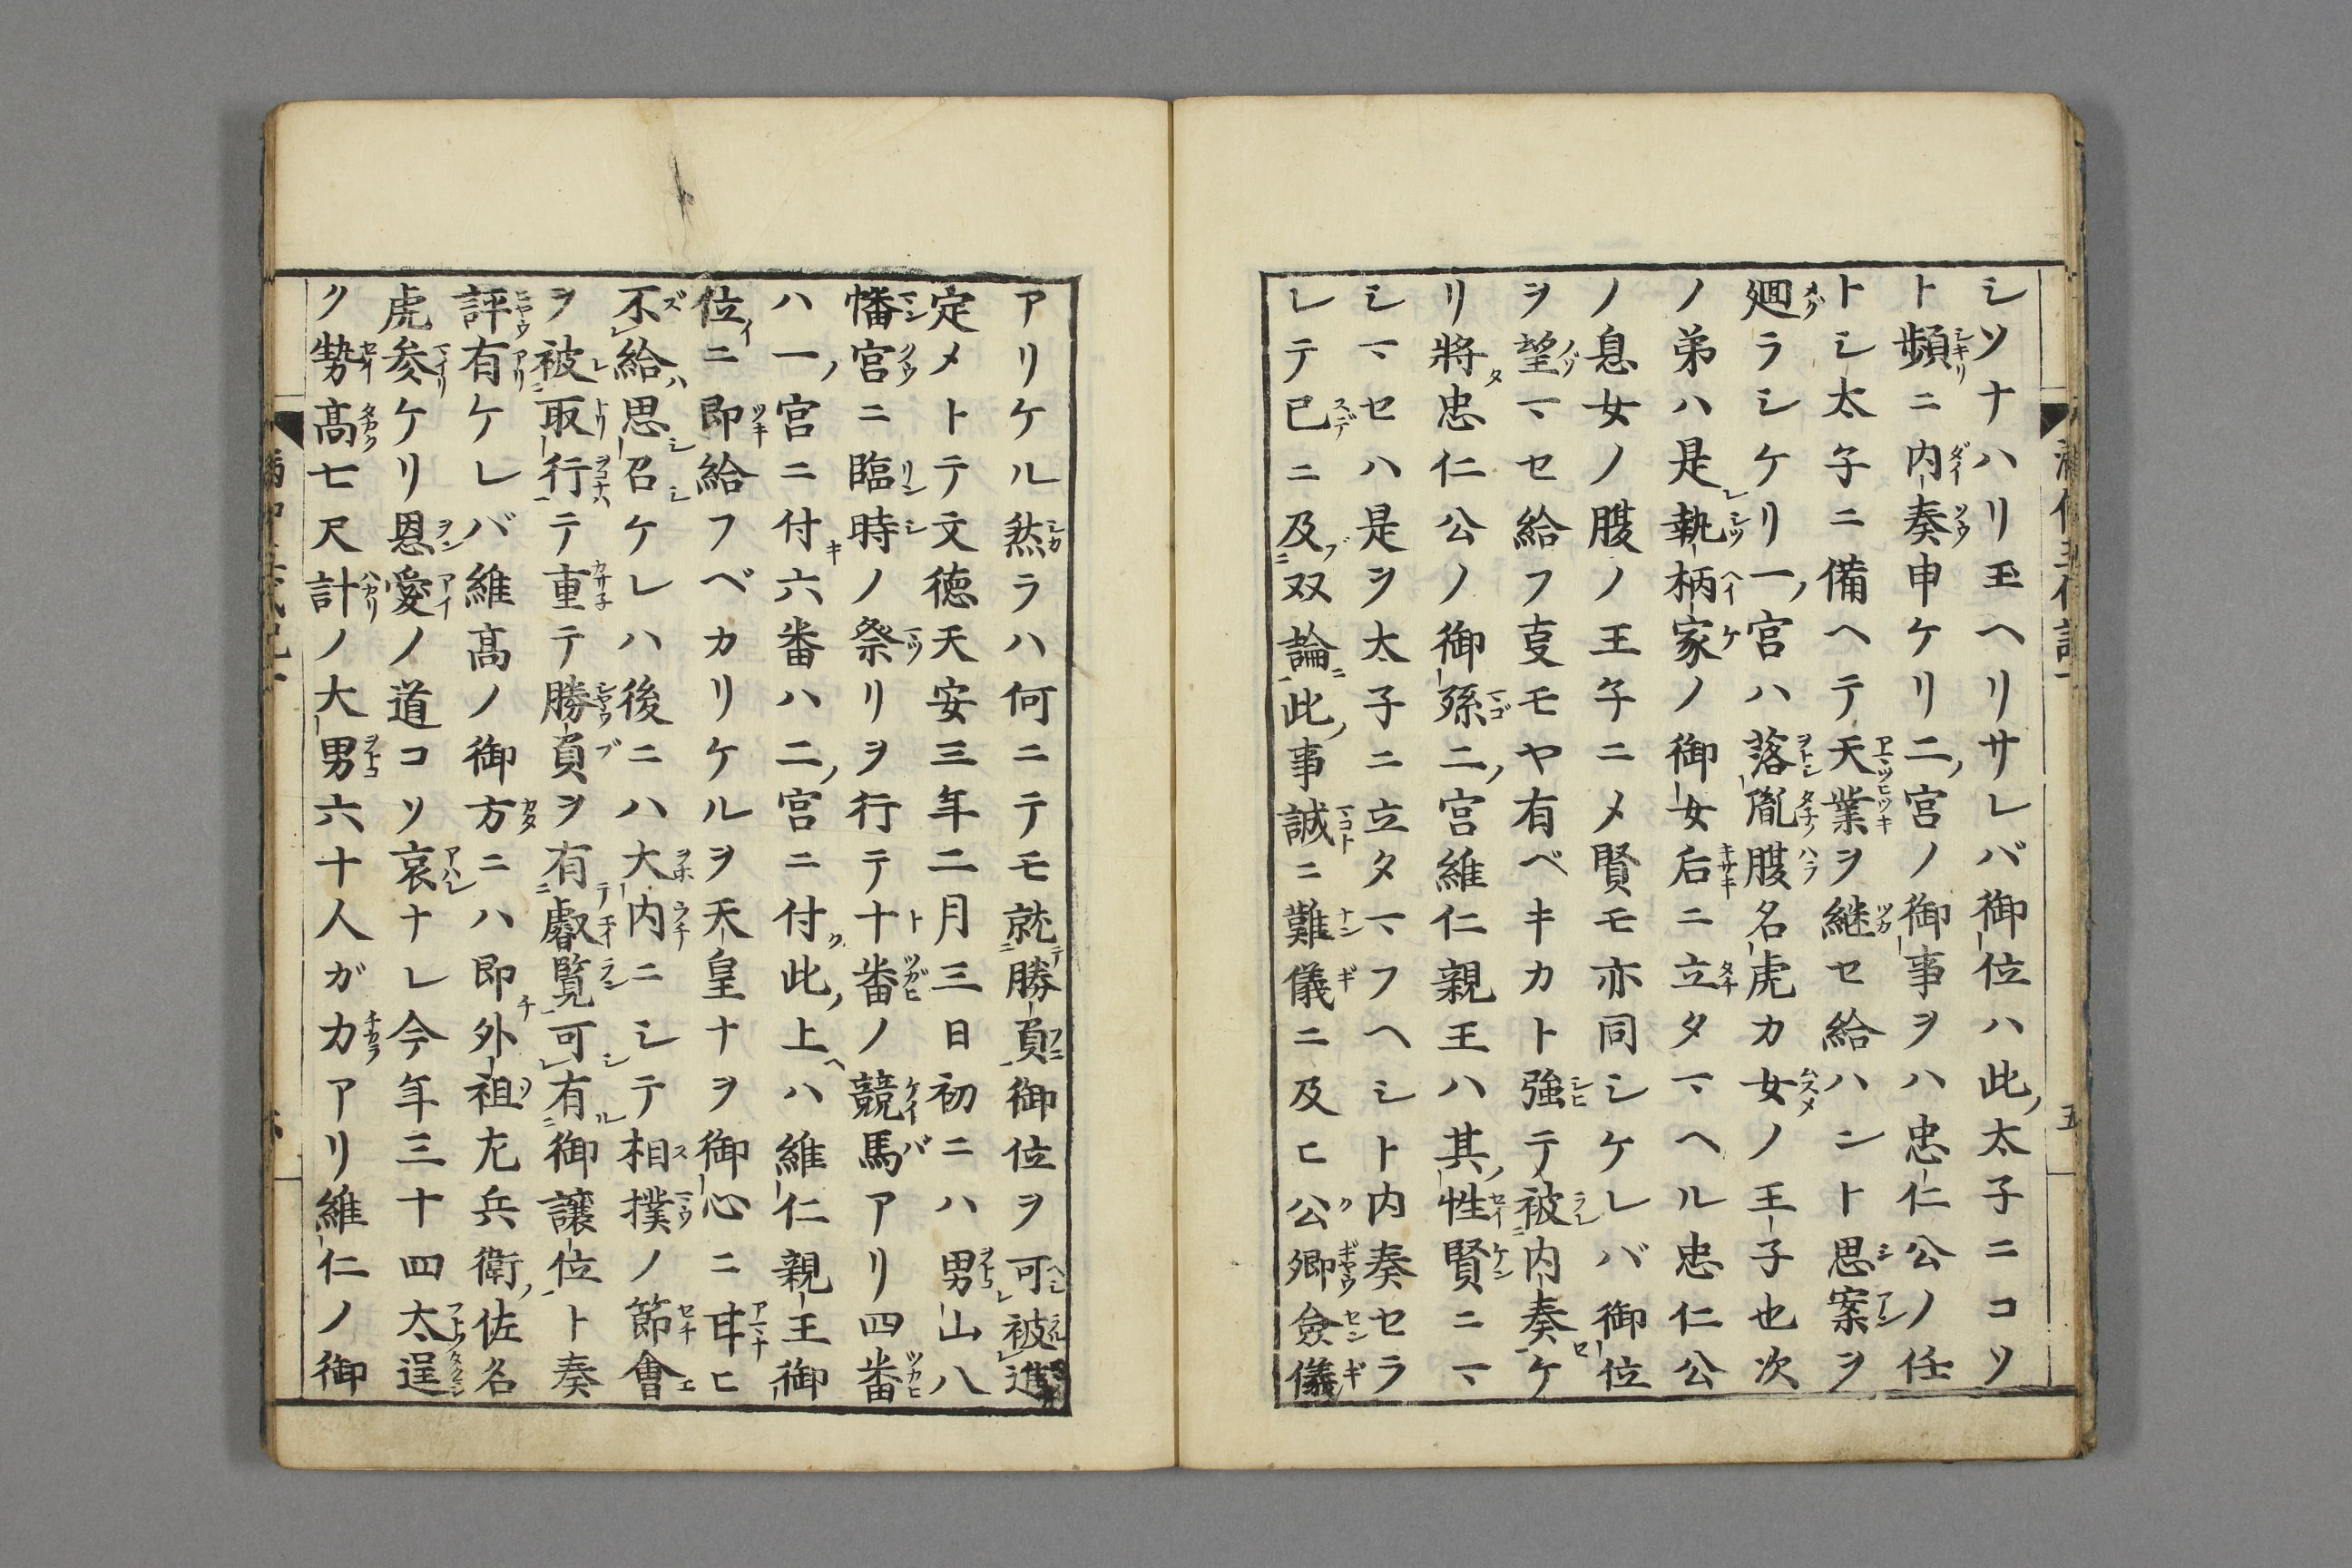 シソナハリ玉ヘリサレバ御位ハ此太子ニコソ
ト頻ニ内奏申ケリ二宮ノ御事ヲハ忠仁公ノ任
トシ太子ニ備ヘテ天業ヲ継セ給ハント思案ヲ
廻ラシケリ一宮ハ落胤腹名虎カ女ノ王子也次
ノ弟ハ是執柄家ノ御女后ニ立タマヘル忠仁公
ノ息女ノ腹ノ王子ニメ賢モ亦同シケレバ御位
ヲ望マセ給フ㕝モヤ有ベキカト強テ被内奏ケ
リ將忠仁公ノ御孫二宮維仁親王ハ其性賢ニマ
シマセハ是ヲ太子ニ立タマフヘシト内奏セラ
レテ已ニ及双論此事誠ニ難儀ニ及ヒ公卿僉儀
アリケル然ラハ何ニテモ就勝負御位ヲ可被進
定メトテ文徳天安三年二月三日初ニハ男山八
幡宮ニ臨時ノ祭リヲ行テ十番ノ競馬アリ四番
ハ一宮ニ付六番ハ二宮ニ付此上ハ維仁親王御
位ニ即給フベカリケルヲ天皇ナヲ御心ニ耳ヒ
不給思召ケレハ後ニハ大内ニシテ相撲ノ節會
ヲ被取行テ重テ勝負ヲ有叡覧可有御譲位ト奏
評有ケレバ維髙ノ御方ニハ即外祖左兵衛佐名
虎参ケリ恩愛ノ道コソ哀ナレ今年三十四太逞
ク勢髙七尺計ノ大男六十人ガ力アリ維仁ノ御